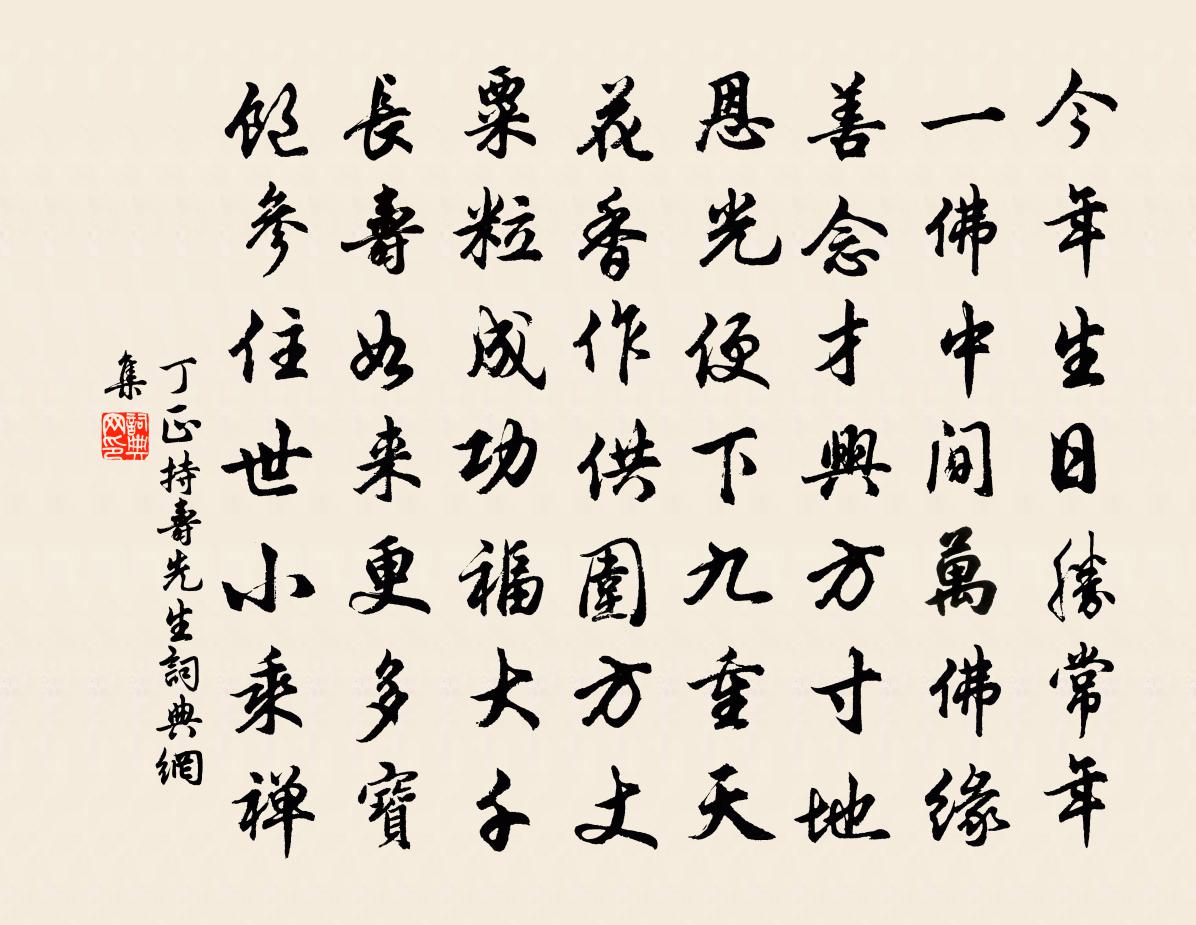 今年生日勝常年
一佛中間萬佛緣
善念才興方寸地
恩光便下九重天
花香作供圍方丈
粟粒成功福大千
長壽如来更多寶
飽參住世小乘禅
丁正持壽先生詞典網
集
詞典
网印